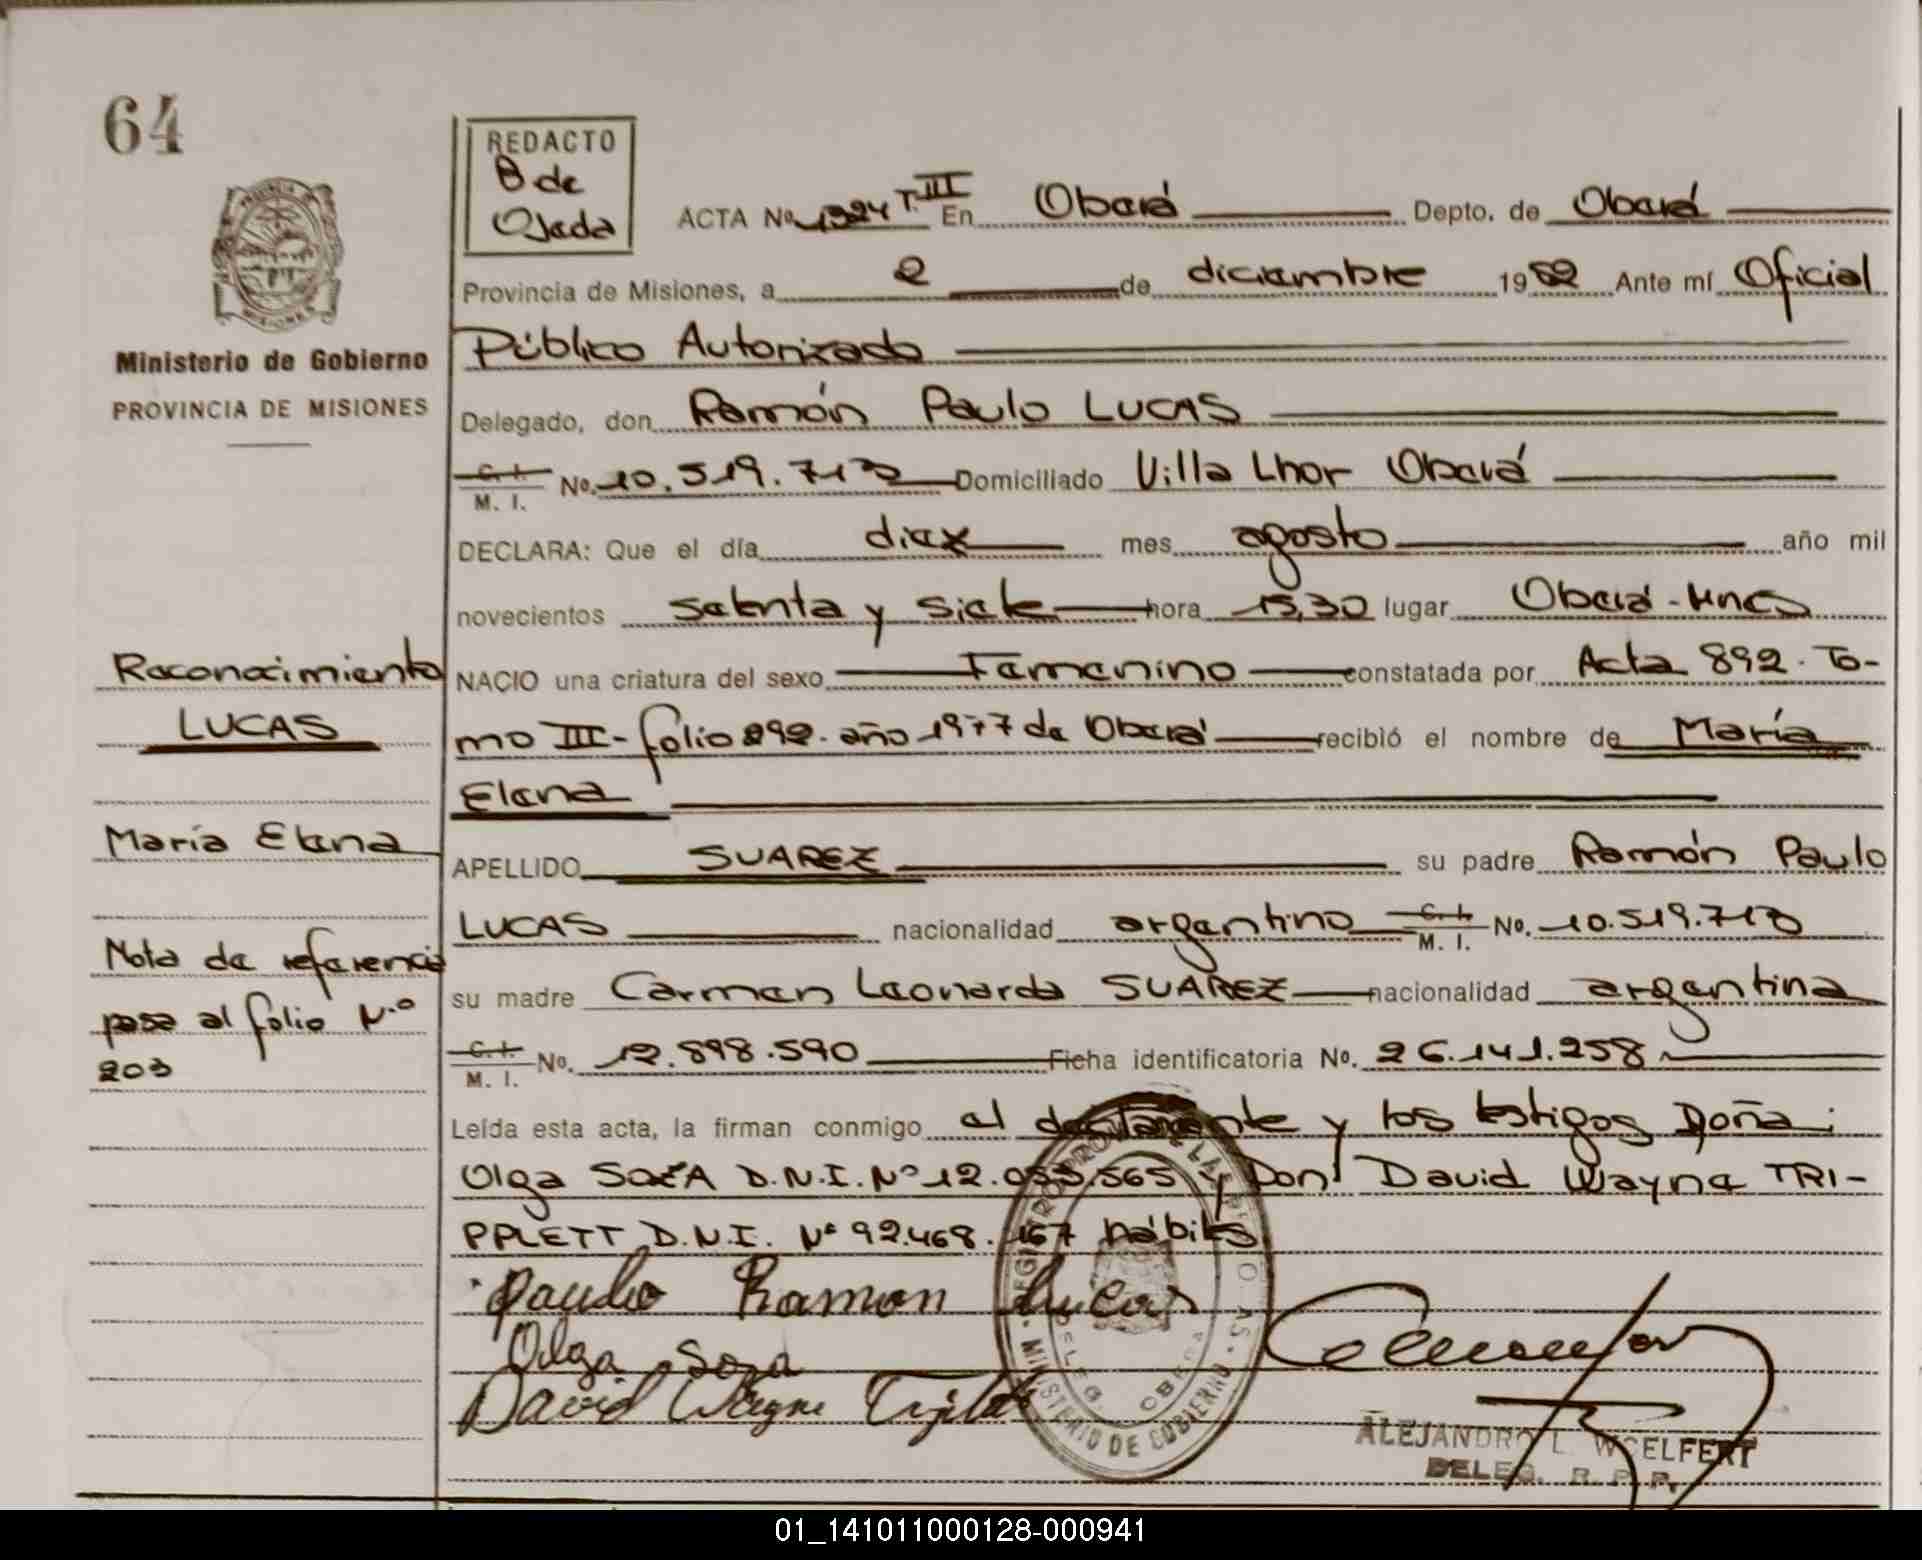 64
REDACTO
B de
Ojeda
ACTA No. 1324 T. III En Oberá Depto. de Oberá
Provincia de Misiones, a 2 de diciembre 1982 Ante mí Oficial
Público Autorizado
Ministerio de Gobierno
PROVINCIA DE MISIONES
Delegado, don Ramón Paulo LUCAS
C. I.
M. I. No. 10.519.713 Domiciliado Villa Lhor Oberá
DECLARA: Que el día diez mes agosto año mil
novecientos setenta y siete hora 15,30 lugar Oberá - Mnes
NACIO una criatura del sexo Femenino constatada por Acta 892. To-
mo III - folio 292. año 1977 de Oberá recibió el nombre de María
Elena
APELLIDO SUAREZ su padre Ramón Paulo
LUCAS nacionalidad argentino C. I. M. I. No. 10.519.713
su madre Carmen Leonarda SUAREZ nacionalidad argentina
C. I.
M. I. No. 12.898.590 Ficha identificatoria No. 26.141.258
Leída esta acta, la firman conmigo el declarante y los testigos Doña:
Olga SOZA D.N.I. Nº 12.053.565 y Don David Wayne TRI-
PPLETT D.N.I. Nº 92.468.167 hábiles
Reconocimiento
LUCAS
María Elena
Nota de referencia
pasa al folio N.º
203
Paulo Ramon Lucas
Olga Soza
David Wayne
MINISTERIO DE GOBIERNO
DELEG. OBERA
ALEJANDRO L. WOELFERT
DELEG. R. P. P.
01_141011000128-000941